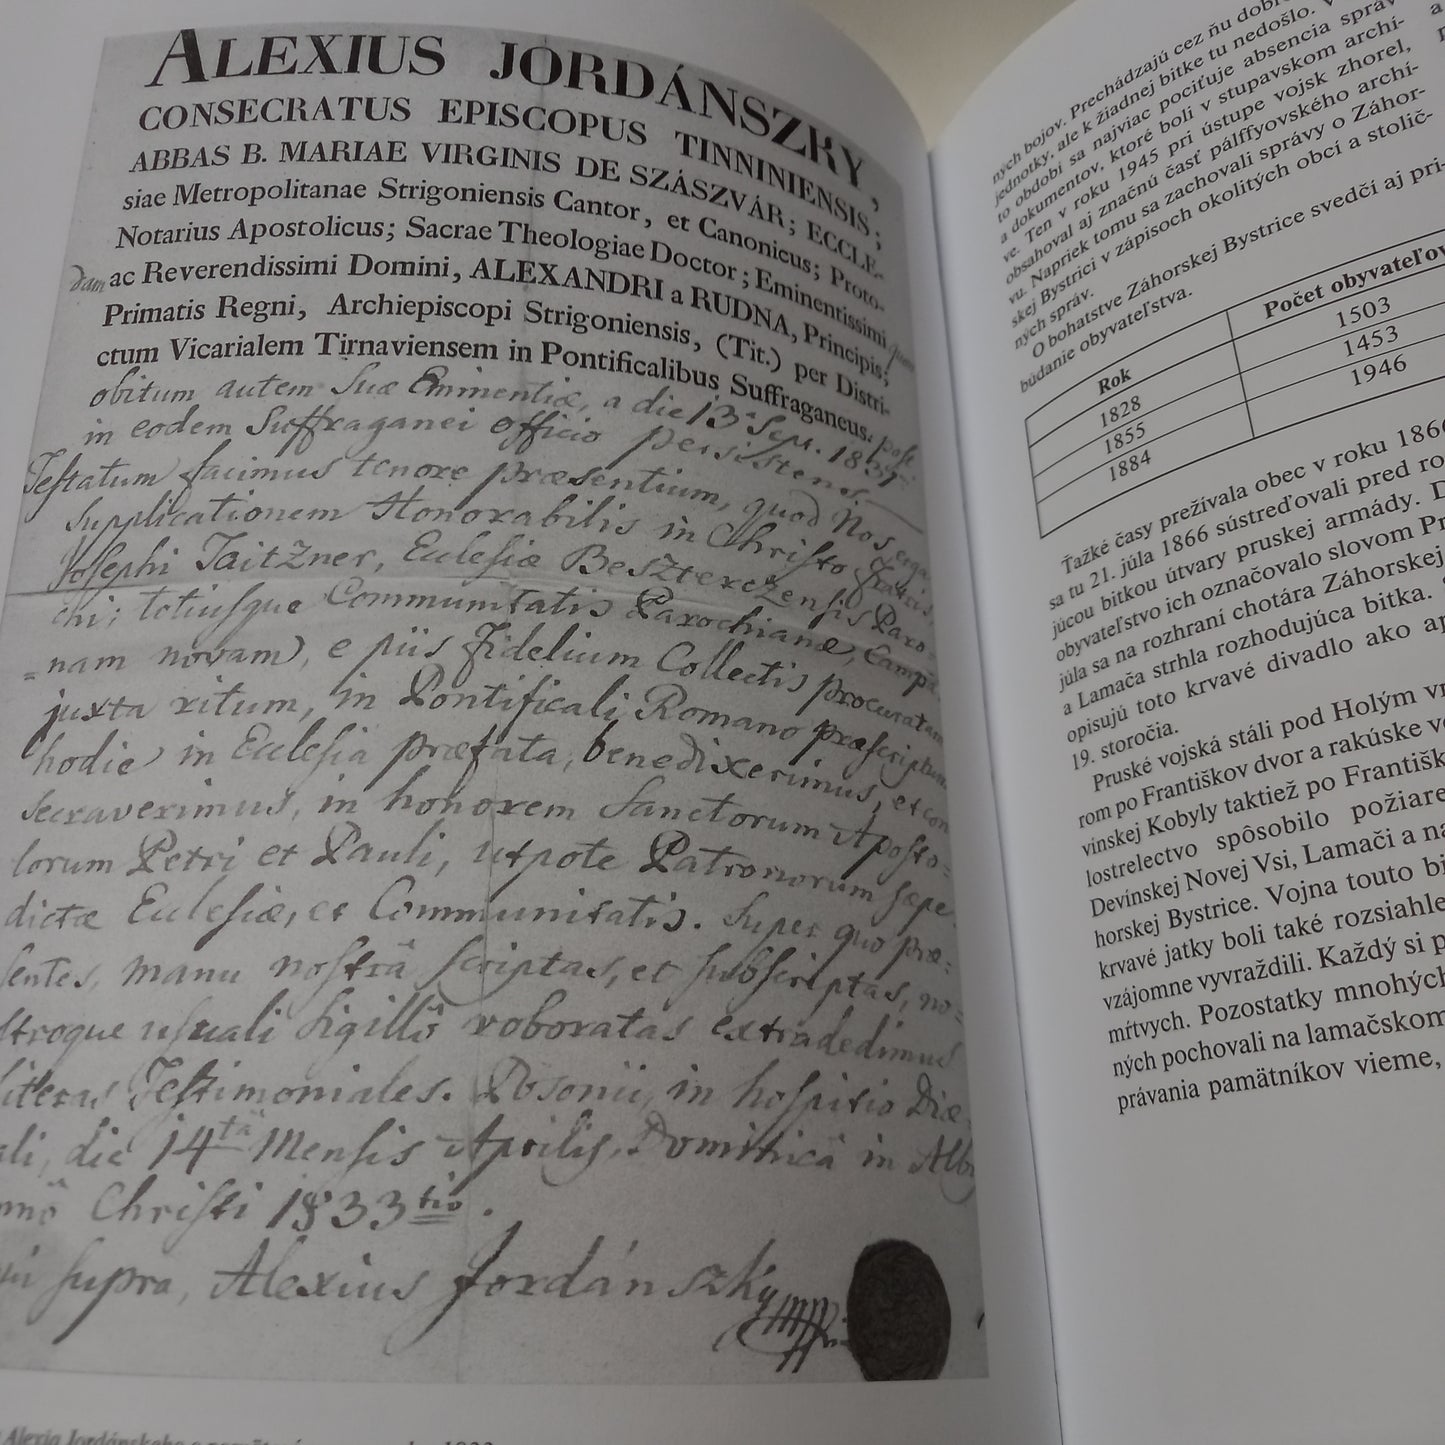 ALEXIUS JORDÁNSZKY,
CONSECRATUS EPISCOPUS TINNINIENSIS;
ABBAS B. MARIAE VIRGINIS DE SZÁSZVÁR; ECCLE-
siae Metropolitanae Strigoniensis Cantor, et Canonicus; Proto-
Notarius Apostolicus; Sacrae Theologiae Doctor; Eminentissimi
dam ac Reverendissimi Domini, ALEXANDRI a RUDNA, Principis, quon
Primatis Regni, Archiepiscopi Strigoniensis, (Tit.) per Distri-
ctum Vicarialem Tirnaviensem in Pontificalibus Suffraganeus. post
obitum autem Suæ Eminentiæ, a die 13ª Sept. 1831.
in eodem Suffraganei officio persistens
Testatum facimus tenore præsentium, quod Nos erga
supplicationem Honorabilis in Christo fratris,
Josephi Taitzner, Ecclesiæ Beszterczensis Paro-
chi; totiusque Communitatis Parochianæ, Campa
=nam novam, e piis fidelium Collectis procuratam
juxta ritum, in Pontificali Romano præscriptum
hodie in Ecclesia præfata, benedixerimus, et con
secraverimus, in honorem Sanctorum Aposto=
lorum Petri et Pauli, utpote Patronorum sæpe
dictæ Ecclesiæ, et Communitatis. Super quo præ=
sentes, manu nostrâ scriptas, et subscriptas, no=
stroque usuali sigillô roboratas extradedimus
literas Testimoniales. Posonii, in hospitio Diæ
ali, die 14tâ Mensis Aprilis, Dominicâ in Albis
nnô Christi 1833tio.
supra, Alexius Jordánszky
Alexia Jordánskeho
ných bojov. Prechádzajú cez ňu
jednotky, ale k žiadnej bitke tu nedošlo.
to období sa najviac pociťuje absencia správ
a dokumentov, ktoré boli v stupavskom archí-
ve. Ten v roku 1945 pri ústupe vojsk zhorel,
obsahoval aj značnú časť pálffyovského archí-
vu. Napriek tomu sa zachovali správy o Záhor-
skej Bystrici v zápisoch okolitých obcí a stolič-
ných správ.
O bohatstve Záhorskej Bystrice svedčí aj pri-
búdanie obyvateľstva.
Rok Počet obyvateľov
1828 1503
1855 1453
1884 1946
Ťažké časy prežívala obec v roku 1866
sa tu 21. júla 1866 sústreďovali pred ro
júcou bitkou útvary pruskej armády. D
obyvateľstvo ich označovalo slovom Pr
júla sa na rozhraní chotára Záhorskej
a Lamača strhla rozhodujúca bitka.
opisujú toto krvavé divadlo ako ap
19. storočia.
Pruské vojská stáli pod Holým vr
rom po Františkov dvor a rakúske v
vínskej Kobyly taktiež po Františk
lostrelectvo spôsobilo požiare
Devínskej Novej Vsi, Lamači a na
horskej Bystrice. Vojna touto bi
krvavé jatky boli také rozsiahle
vzájomne vyvraždili. Každý si p
mŕtvych. Pozostatky mnohých
ných pochovali na lamačskom
právania pamätníkov vieme,